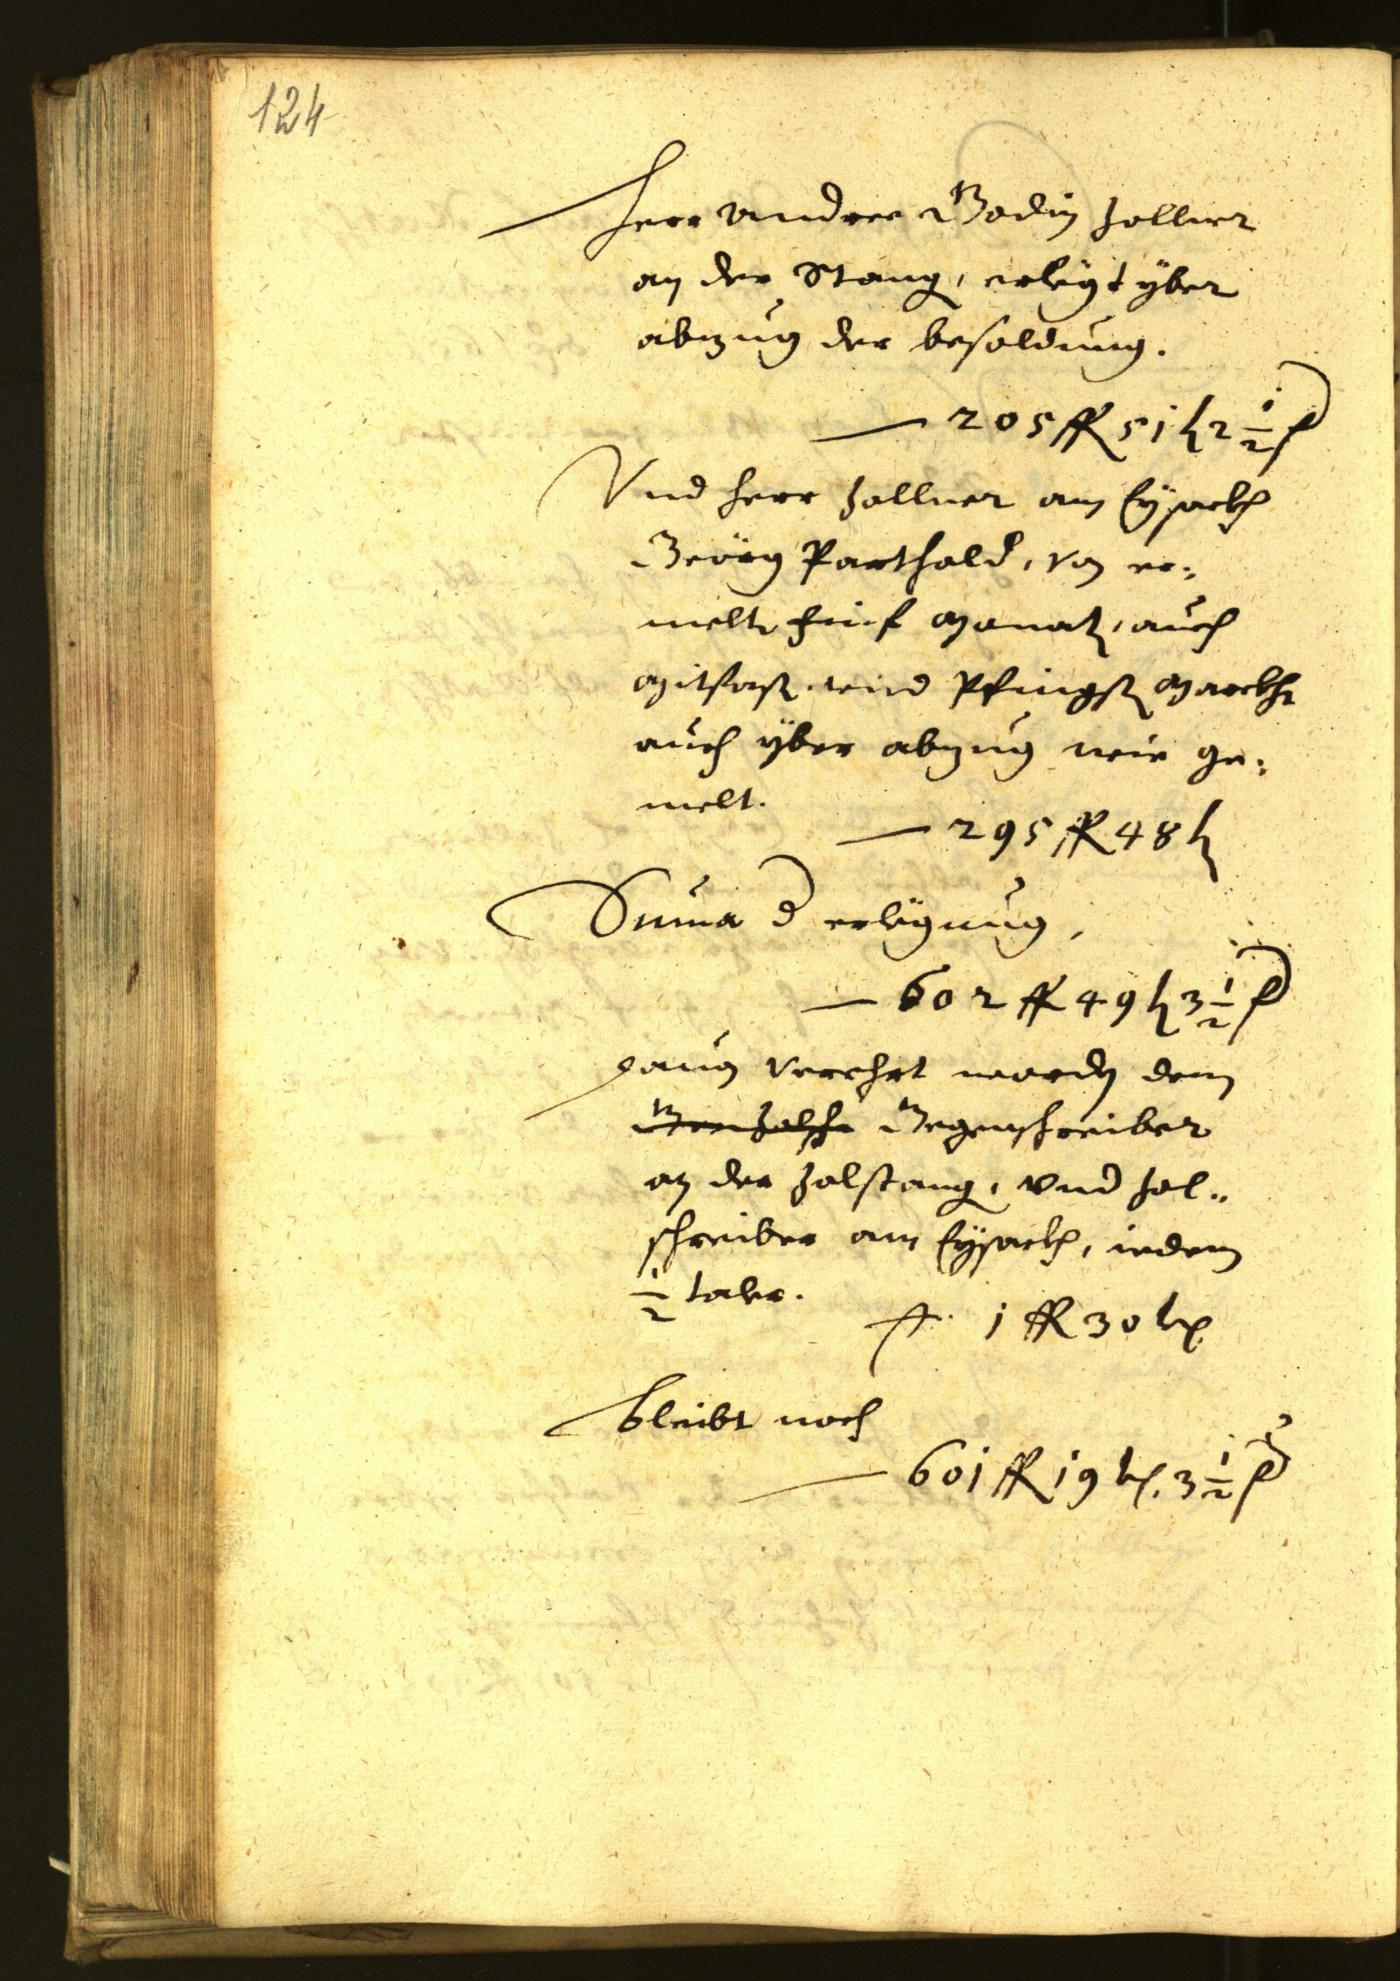 124
Herr Andree Godin Zollner
an der Stang, erlegt yber
abzug der besoldung.
— 205 fl 51 k 2 1/2 d
Vnd herr Zollner am Eysackh
Geörg Parthold, von er:
melte finf Monat, auch
Mitfast und Pfingst Marckht
auch yber abzug wie ge:
melt.
— 295 fl 48 k
Suma d erlegnug,
— 602 fl 49 k 3 1/2 d
Dauon verehrt worden dem
Gegenschreiber
an der Zolstang, vnd Zol„
schreiber am Eysackh, iedem
1/2 taler.
1 fl 30 kr
bleibt noch
— 601 fl 19 kr. 3 1/2 d